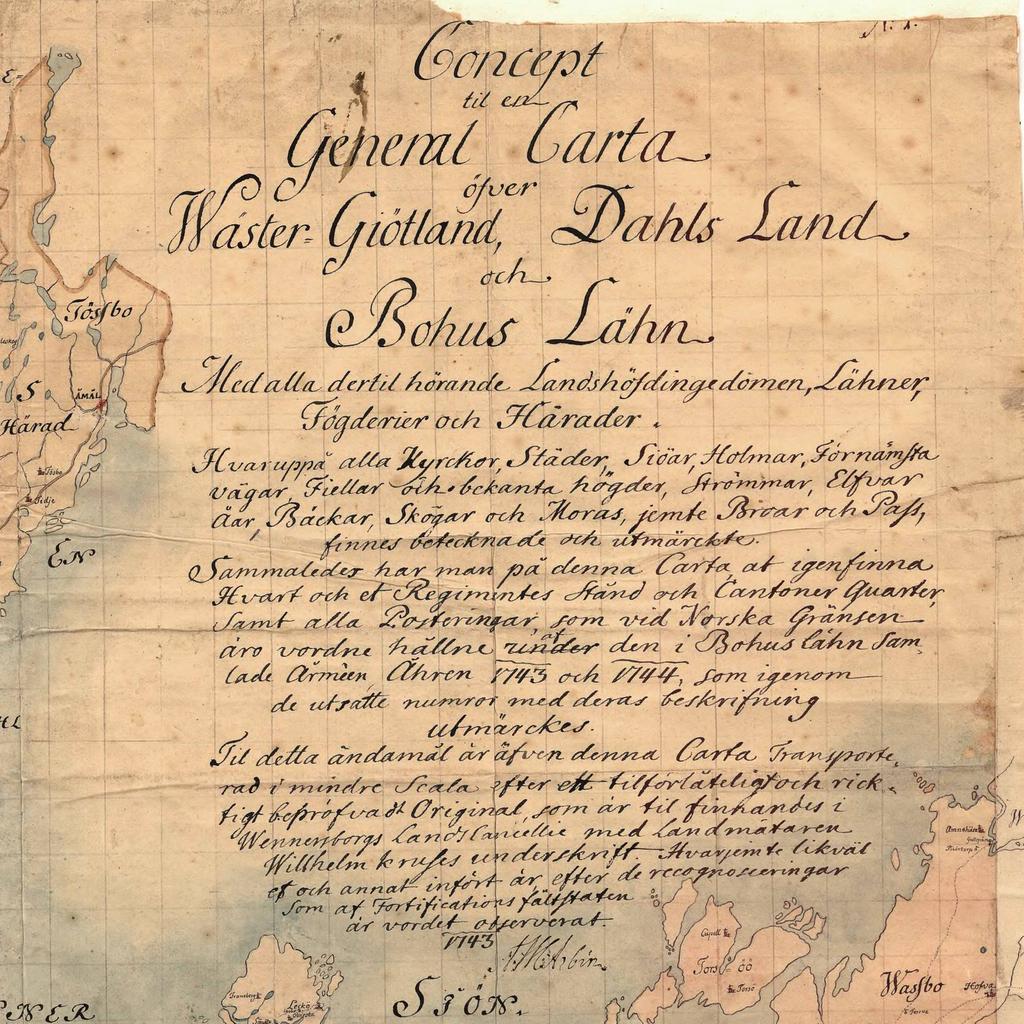 Concept
til en
General Carta
öfver
Wäster-Giötland, Dahls Land
och
Bohus Lähn
Med alla dertil hörande Landshöfdingedömen, Lähner,
Fögderier och Härader.
Hvaruppå alla Kyrckor, Städer, Siöar, Holmar, Förnämsta
vägar, Fiellar och bekanta högder, Strömmar, Elfvar
Åar, Bäckar, Skogar och Moras, jemte Broar och Pass,
finnes betecknade och utmärckte.
Sammaledes har man på denna Carta at igenfinna
Hvart och et Regimentes Stånd och Cantoner Quarter,
samt alla Posteringar, som vid Norska Gränsen
äro vordne hållne af den i Bohus Lähn Sam-
lade Arméen Åhren 1743 och 1744, som igenom
de utsatte numror med deras beskrifning
utmärckes.
Til detta ändamål är äfven denna Carta Transporte-
rad i mindre Scala efter ett tilförlåteligt och rick-
tigt bepröfvadt Original, som är til finnandes i
Wennersborgs LandsCancellie med Landmätaren
Willhelm Kruses underskrift. Hvarjemte likväl
et och annat infört är efter de recognosceringar
som af Fortifications fältstaten
är vordet observerat.
1743
Tössbo
ÅMÅL
S
Härad
EN
NER
SIÖN.
Läckö
Torsöö
Torsö
Wassbo